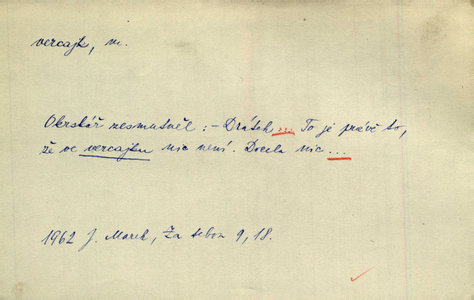 vercajk, m.
Okrskář zesmutněl : – Drátek ... To je právě to,
že ve vercajku nic není. Docela nic ...
1962 J. Marek, Za tebou 9, 18.